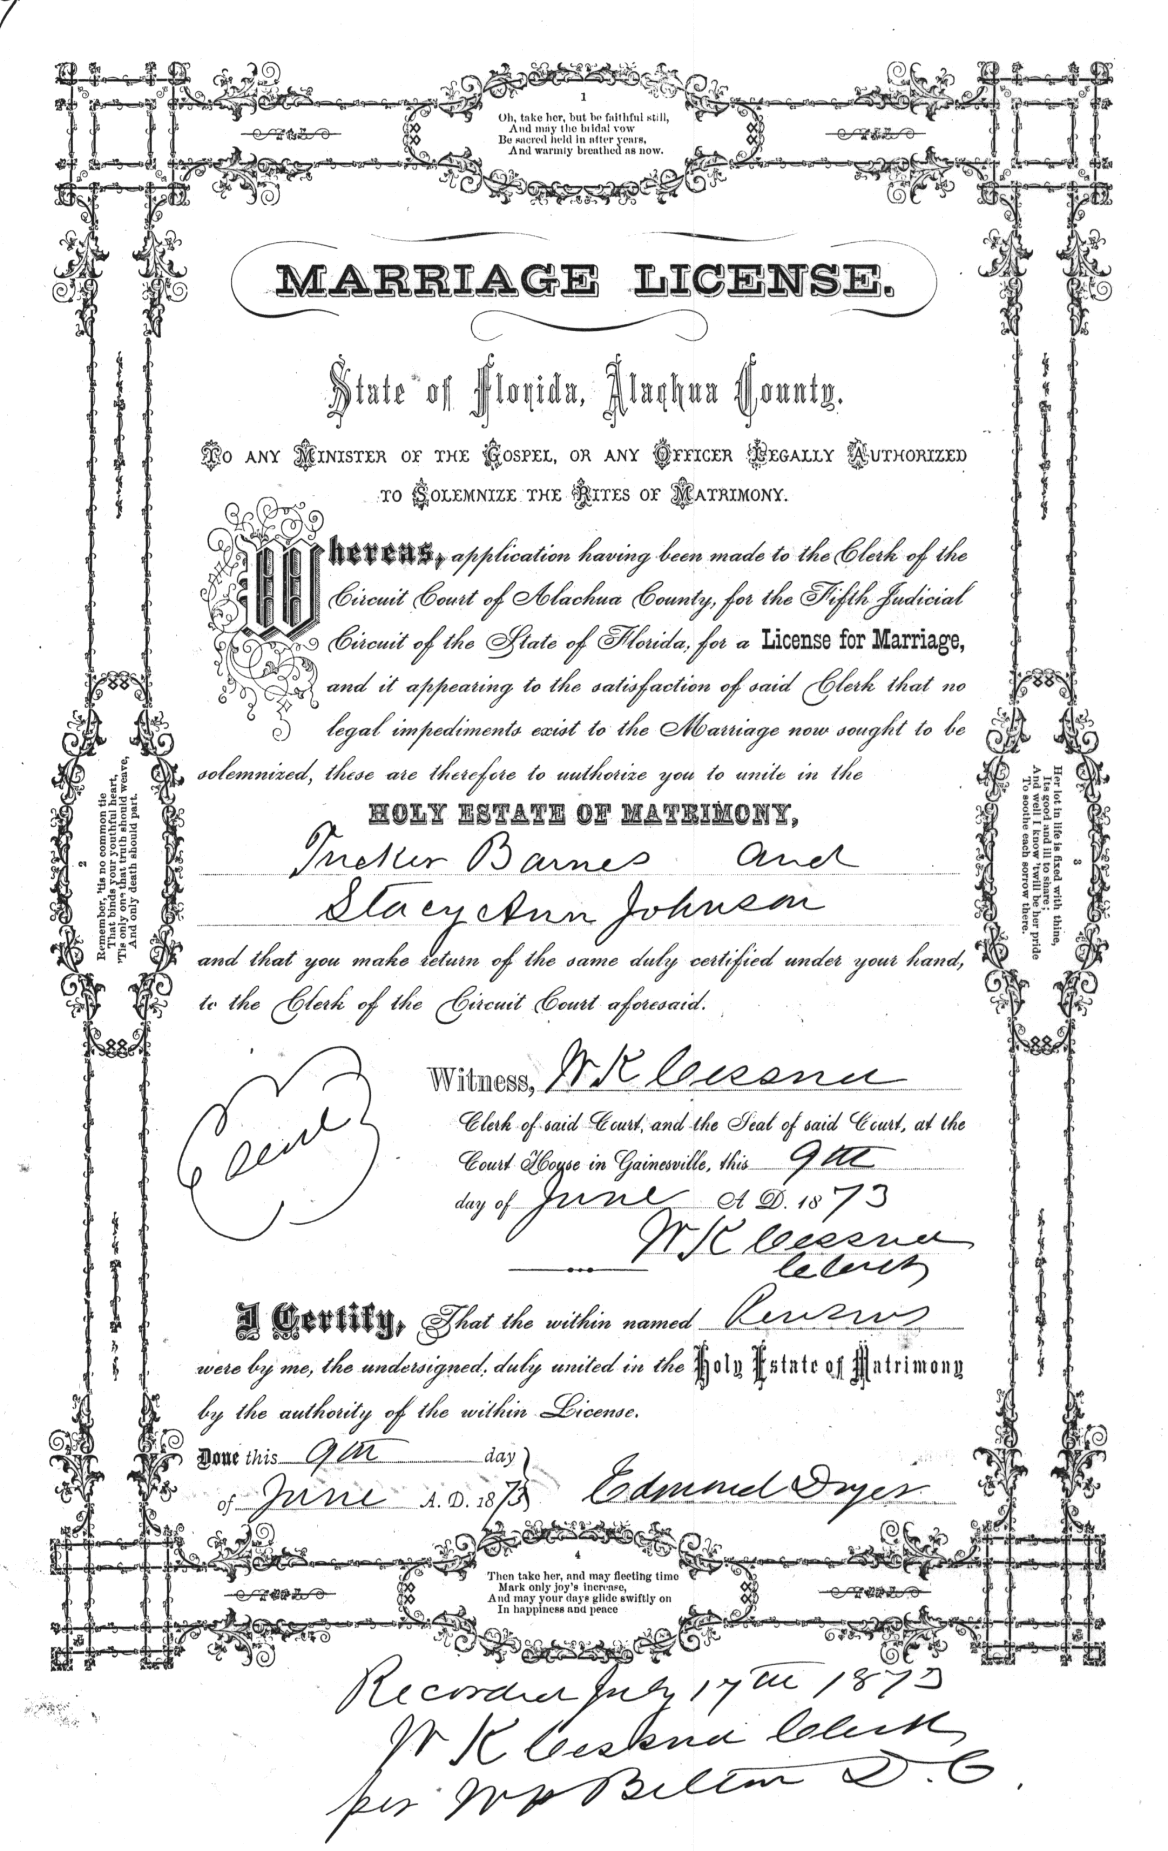 1
Oh, take her, but be faithful still,
And may the bridal vow
Be sacred held in after years,
And warmly breathed as now.
MARRIAGE LICENSE.
State of Florida, Alachua County.
TO ANY MINISTER OF THE GOSPEL, OR ANY OFFICER LEGALLY AUTHORIZED
TO SOLEMNIZE THE RITES OF MATRIMONY.
Whereas, application having been made to the Clerk of the
Circuit Court of Alachua County, for the Fifth Judicial
Circuit of the State of Florida, for a License for Marriage,
and it appearing to the satisfaction of said Clerk that no
legal impediments exist to the Marriage now sought to be
solemnized, these are therefore to authorize you to unite in the
HOLY ESTATE OF MATRIMONY,
Tucker Barnes and
Stacy Ann Johnson
and that you make return of the same duly certified under your hand,
to the Clerk of the Circuit Court aforesaid.
Witness, W K Cessna
Clerk of said Court, and the Seal of said Court, at the
Court House in Gainesville, this 9th
day of June A. D. 1873
W K Cessna
Clerk
Seal
I Certify, That the within named Persons
were by me, the undersigned, duly united in the Holy Estate of Matrimony
by the authority of the within License.
Done this 9th day
of June A. D. 1873
Edmond Dryer
2
Remember, 'tis no common tie
That binds your youthful heart,
'Tis only one that truth should weave,
And only death should part.
3
Her lot in life is fixed with thine,
Its good and ill to share;
And well I know 'twill be her pride
To soothe each sorrow there.
4
Then take her, and may fleeting time
Mark only joy's increase,
And may your days glide swiftly on
In happiness and peace
Recorded July 17th 1873
W K Cessna Clerk
per Belton D. C.